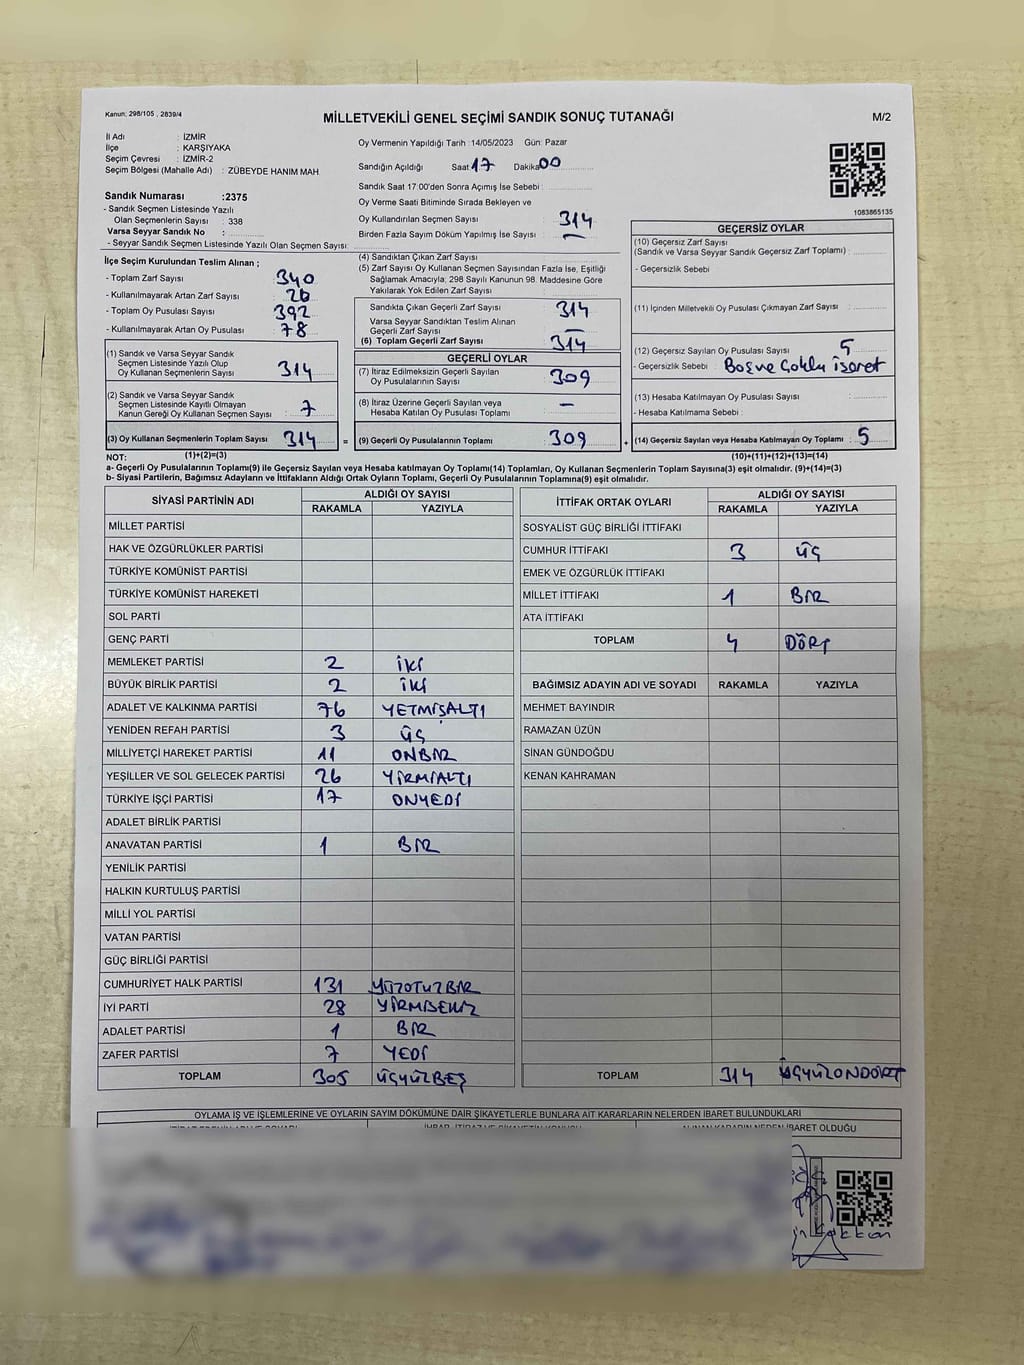 Kanun: 298/105 , 2839/4
MİLLETVEKİLİ GENEL SEÇİMİ SANDIK SONUÇ TUTANAĞI
M/2
İl Adı : İZMİR
İlçe : KARŞIYAKA
Seçim Çevresi : İZMİR-2
Seçim Bölgesi (Mahalle Adı) : ZÜBEYDE HANIM MAH.
Oy Vermenin Yapıldığı Tarih :14/05/2023 Gün: Pazar
Sandığın Açıldığı Saat 17 Dakika 00
Sandık Saat 17:00'den Sonra Açımış İse Sebebi :
Oy Verme Saati Bitiminde Sırada Bekleyen ve
Oy Kullandırılan Seçmen Sayısı : 314
Birden Fazla Sayım Döküm Yapılmış İse Sayısı : —
1083865135
Sandık Numarası :2375
- Sandık Seçmen Listesinde Yazılı
Olan Seçmenlerin Sayısı : 338
Varsa Seyyar Sandık No :
- Seyyar Sandık Seçmen Listesinde Yazılı Olan Seçmen Sayısı:
İlçe Seçim Kurulundan Teslim Alınan ;
- Toplam Zarf Sayısı 340
- Kullanılmayarak Artan Zarf Sayısı 26
- Toplam Oy Pusulası 392
- Kullanılmayarak Artan Oy Pusulası 78
(1) Sandık ve Varsa Seyyar Sandık
Seçmen Listesinde Yazılı Olup
Oy Kullanan Seçmenlerin Sayısı 314
(2) Sandık ve Varsa Seyyar Sandık
Seçmen Listesinde Kayıtlı Olmayan
Kanun Gereği Oy Kullanan Seçmen Sayısı 7
(3) Oy Kullanan Seçmenlerin Toplam Sayısı 314 =
(4) Sandıktan Çıkan Zarf Sayısı :
(5) Zarf Sayısı Oy Kullanan Seçmen Sayısından Fazla İse, Eşitliği
Sağlamak Amacıyla; 298 Sayılı Kanunun 98. Maddesine Göre
Yakılarak Yok Edilen Zarf Sayısı :
Sandıkta Çıkan Geçerli Zarf Sayısı 314
Varsa Seyyar Sandıktan Teslim Alınan
Geçerli Zarf Sayısı —
(6) Toplam Geçerli Zarf Sayısı 314
GEÇERLİ OYLAR
(7) İtiraz Edilmeksizin Geçerli Sayılan
Oy Pusulalarının Sayısı 309
(8) İtiraz Üzerine Geçerli Sayılan veya
Hesaba Katılan Oy Pusulası Toplamı —
(9) Geçerli Oy Pusulalarının Toplamı 309 +
GEÇERSİZ OYLAR
(10) Geçersiz Zarf Sayısı
(Sandık ve Varsa Seyyar Sandık Geçersiz Zarf Toplamı) :
- Geçersizlik Sebebi
(11) İçinden Milletvekili Oy Pusulası Çıkmayan Zarf Sayısı :
(12) Geçersiz Sayılan Oy Pusulası Sayısı 5
- Geçersizlik Sebebi : Boş ve Çoklu işaret
(13) Hesaba Katılmayan Oy Pusulası Sayısı :
- Hesaba Katılmama Sebebi :
(14) Geçersiz Sayılan veya Hesaba Katılmayan Oy Toplamı : 5
NOT: (1)+(2)=(3)
(10)+(11)+(12)+(13)=(14)
a- Geçerli Oy Pusulalarının Toplamı(9) ile Geçersiz Sayılan veya Hesaba katılmayan Oy Toplamı(14) Toplamları, Oy Kullanan Seçmenlerin Toplam Sayısına(3) eşit olmalıdır. (9)+(14)=(3)
b- Siyasi Partilerin, Bağımsız Adayların ve İttifakların Aldığı Ortak Oyların Toplamı, Geçerli Oy Pusulalarının Toplamına(9) eşit olmalıdır.
SİYASİ PARTİNİN ADI ALDIĞI OY SAYISI
RAKAMLA YAZIYLA
MİLLET PARTİSİ
HAK VE ÖZGÜRLÜKLER PARTİSİ
TÜRKİYE KOMÜNİST PARTİSİ
TÜRKİYE KOMÜNİST HAREKETİ
SOL PARTİ
GENÇ PARTİ
MEMLEKET PARTİSİ 2 İKİ
BÜYÜK BİRLİK PARTİSİ 2 İKİ
ADALET VE KALKINMA PARTİSİ 76 YETMİŞALTI
YENİDEN REFAH PARTİSİ 3 ÜÇ
MİLLİYETÇİ HAREKET PARTİSİ 11 ONBİR
YEŞİLLER VE SOL GELECEK PARTİSİ 26 YİRMİALTI
TÜRKİYE İŞÇİ PARTİSİ 17 ONYEDİ
ADALET BİRLİK PARTİSİ
ANAVATAN PARTİSİ 1 BİR
YENİLİK PARTİSİ
HALKIN KURTULUŞ PARTİSİ
MİLLİ YOL PARTİSİ
VATAN PARTİSİ
GÜÇ BİRLİĞİ PARTİSİ
CUMHURİYET HALK PARTİSİ 131 YÜZOTUZBİR
İYİ PARTİ 28 YİRMİSEKİZ
ADALET PARTİSİ 1 BİR
ZAFER PARTİSİ 7 YEDİ
TOPLAM 305 ÜÇYÜZBEŞ
İTTİFAK ORTAK OYLARI ALDIĞI OY SAYISI
RAKAMLA YAZIYLA
SOSYALİST GÜÇ BİRLİĞİ İTTİFAKI
CUMHUR İTTİFAKI 3 ÜÇ
EMEK VE ÖZGÜRLÜK İTTİFAKI
MİLLET İTTİFAKI 1 BİR
ATA İTTİFAKI
TOPLAM 4 DÖRT
BAĞIMSIZ ADAYIN ADI VE SOYADI RAKAMLA YAZIYLA
MEHMET BAYINDIR
RAMAZAN ÜZÜN
SİNAN GÜNDOĞDU
KENAN KAHRAMAN
TOPLAM 314 ÜÇYÜZONDÖRT
OYLAMA İŞ VE İŞLEMLERİNE VE OYLARIN SAYIM DÖKÜMÜNE DAİR ŞİKAYETLERLE BUNLARA AİT KARARLARIN NELERDEN İBARET BULUNDUKLARI
İHBAR, İTİRAZ VE ŞİKAYETİN KONUSU ALINAN KARARIN NEDEN İBARET OLDUĞU